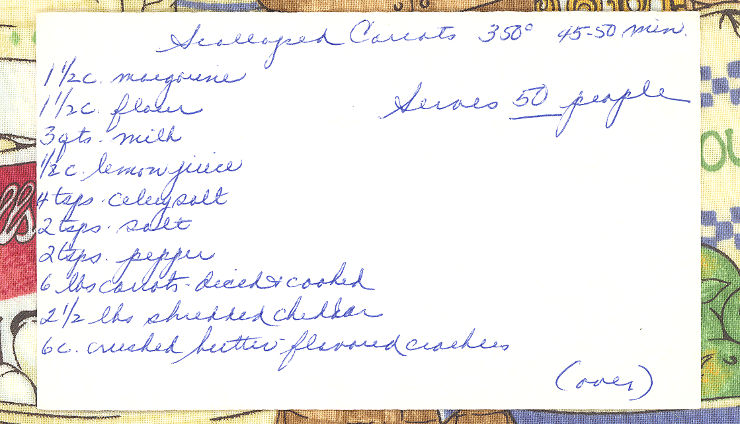 Scalloped Carrots 350° 45-50 min.
1 1/2 c. margarine
1 1/2 c. flour
Serves 50 people
3 qts. milk
1/2 c. lemon juice
4 tsps. celery salt
2 tsps. salt
2 tsps. pepper
6 lbs carrots - diced & cooked
2 1/2 lbs shredded cheddar
6 c. crushed butter-flavored crackers
(over)